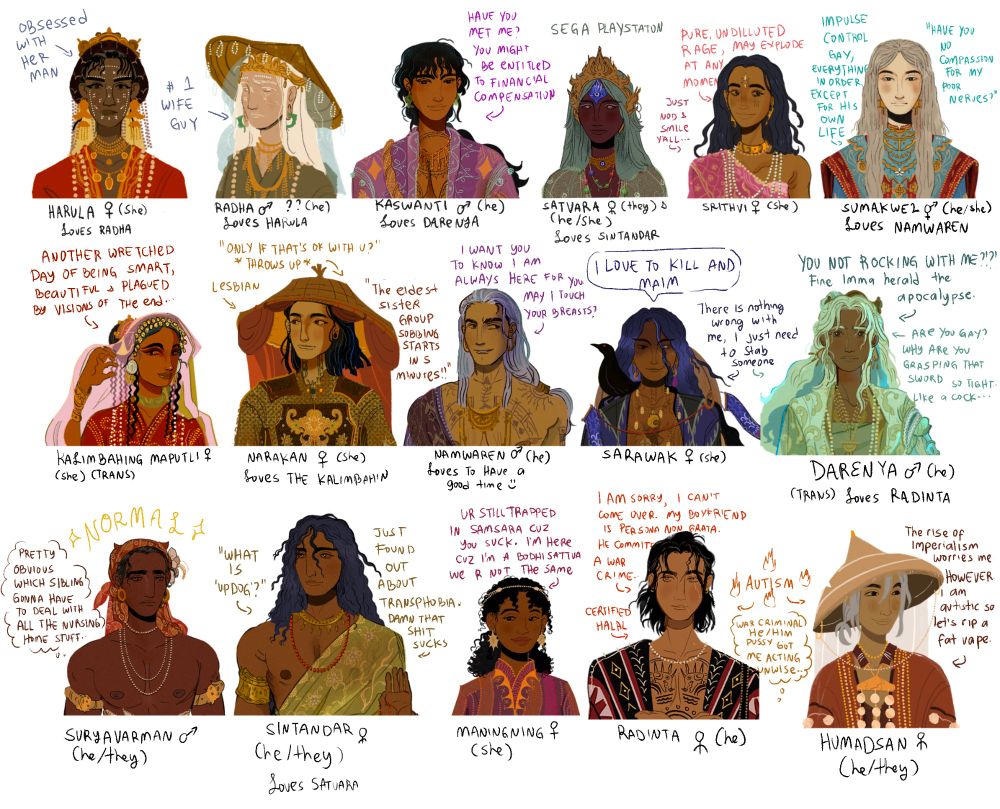 OBSESSED
WITH
HER
MAN
HARULA ♀ (She)
Loves RADHA
# 1
WIFE
GUY
RADHA ♂ ?? (he)
Loves HARULA
HAVE YOU
MET ME?
YOU MIGHT
BE ENTITLED
TO FINANCIAL
COMPENSATION
KASWANTI ♂ (he)
Loves DARENYA
SEGA PLAYSTATON
SATVARA ♀ (they)
(he/she)
Loves SINTANDAR
PURE, UNDILLUTED
RAGE, MAY EXPLODE
AT ANY
MOMENT
JUST
NOD &
SMILE
YALL...
SRITHVI ♀ (she)
IMPULSE
CONTROL
GAY,
EVERYTHING
IN ORDER
EXCEPT
FOR HIS
OWN
LIFE
"HAVE YOU
NO
COMPASSION
FOR MY
POOR
NERIES?"
SUMAKWEL (he/she)
Loves NAMWAREN
ANOTHER WRETCHED
DAY OF BEING SMART,
BEAUTIFUL & PLAGUED
BY VISIONS OF THE END...
KALIMBAHING MAPUTLI ♀
(she) (TRANS)
"ONLY IF THAT'S OK WITH U?"
*THROWS UP*
LESBIAN
"The eldest
sister
GROUP
SOBBING
STARTS
IN 5
MINUTES!!"
NARAKAN ♀ (she)
Loves THE KALIMBAHIN
I WANT YOU
TO KNOW I AM
ALWAYS HERE FOR YOU
MAY I TOUCH
YOUR BREASTS?
NAMWAREN ♂ (he)
Loves TO HAVE a
good time
I LOVE TO KILL AND
MAIM
There is nothing
wrong with
me, I just need
to stab
someone
SARAWAK ♀ (she)
YOU NOT ROCKING WITH ME?!?!
Fine Imma herald the
apocalypse.
ARE YOU GAY?
WHY ARE YOU
GRASPING THAT
SWORD SO TIGHT.
LIKE A COCK...
DARENYA ♂ (he)
(TRANS) Loves RADINTA
NORMAL
PRETTY
OBVIOUS
WHICH SIBLING
GONNA HAVE
TO DEAL WITH
ALL THE NURSING
HOME STUFF...
SURYAVARMAN ♂
(he/they)
"WHAT
IS
'UPDOG'?"
JUST
FOUND
OUT
ABOUT
TRANSPHOBIA.
DAMN THAT
SHIT
SUCKS
SINTANDAR
(he/they)
Loves SATVARA
UR STILL TRAPPED
IN SAMSARA CUZ
YOU SUCK. I'M HERE
CUZ I'M A BODHISATTVA
WE R NOT THE SAME
MANINGNING ♀
(she)
I AM SORRY, I CAN'T
COME OVER. MY BOYFRIEND
IS PERSONA NON GRATA.
HE COMMITTED
A WAR
CRIME.
CERTIFIED
HALAL
RADINTA (he)
AUTISM
WAR CRIMINAL
HE/HIM
PUSSY GOT
ME ACTING
UNWISE...
The rise of
Imperialism
worries me
HOWEVER
I am
autistic so
let's rip a
fat vape.
HUMADSAN
(he/they)